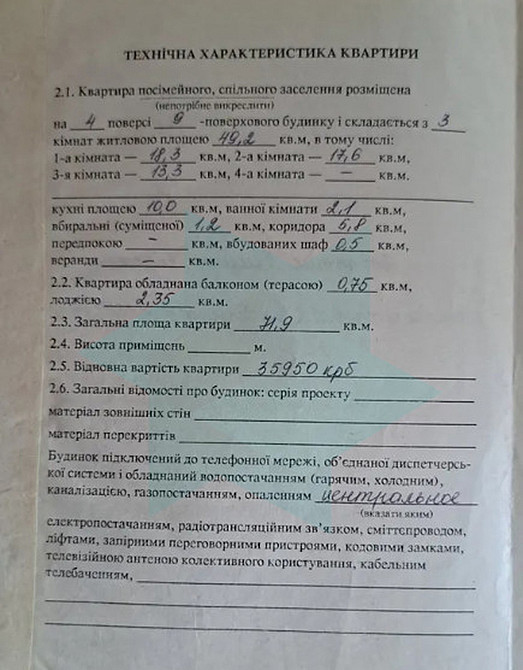 ТЕХНІЧНА ХАРАКТЕРИСТИКА КВАРТИРИ
2.1. Квартира посімейного, спільного заселення розміщена
(непотрібне викреслити)
на 4 поверсі 9 -поверхового будинку і складається з 3
кімнат житловою площею 49,2 кв.м, в тому числі:
1-а кімната — 18,3 кв.м, 2-а кімната — 17,6 кв.м,
3-я кімната — 13,3 кв.м, 4-а кімната — — кв.м.
кухні площею 10,0 кв.м, ванної кімнати 2,1 кв.м,
вбиральні (суміщеної) 1,2 кв.м, коридора 5,8 кв.м,
передпокою — кв.м, вбудованих шаф 0,5 кв.м,
веранди — кв.м.
2.2. Квартира обладнана балконом (терасою) 0,75 кв.м,
лоджією 2,35 кв.м.
2.3. Загальна площа квартири 71,9 кв.м.
2.4. Висота приміщень м.
2.5. Відновна вартість квартири 35950 крб
2.6. Загальні відомості про будинок: серія проекту
матеріал зовнішніх стін
матеріал перекриттів
Будинок підключений до телефонної мережі, об’єднаної диспетчерсь-
кої системи і обладнаний водопостачанням (гарячим, холодним),
каналізацією, газопостачанням, опаленням центральное
(вказати яким)
електропостачанням, радіотрансляційним зв’язком, сміттєпроводом,
ліфтами, запірними переговорними пристроями, кодовими замками,
телевізійною антеною колективного користування, кабельним
телебаченням,